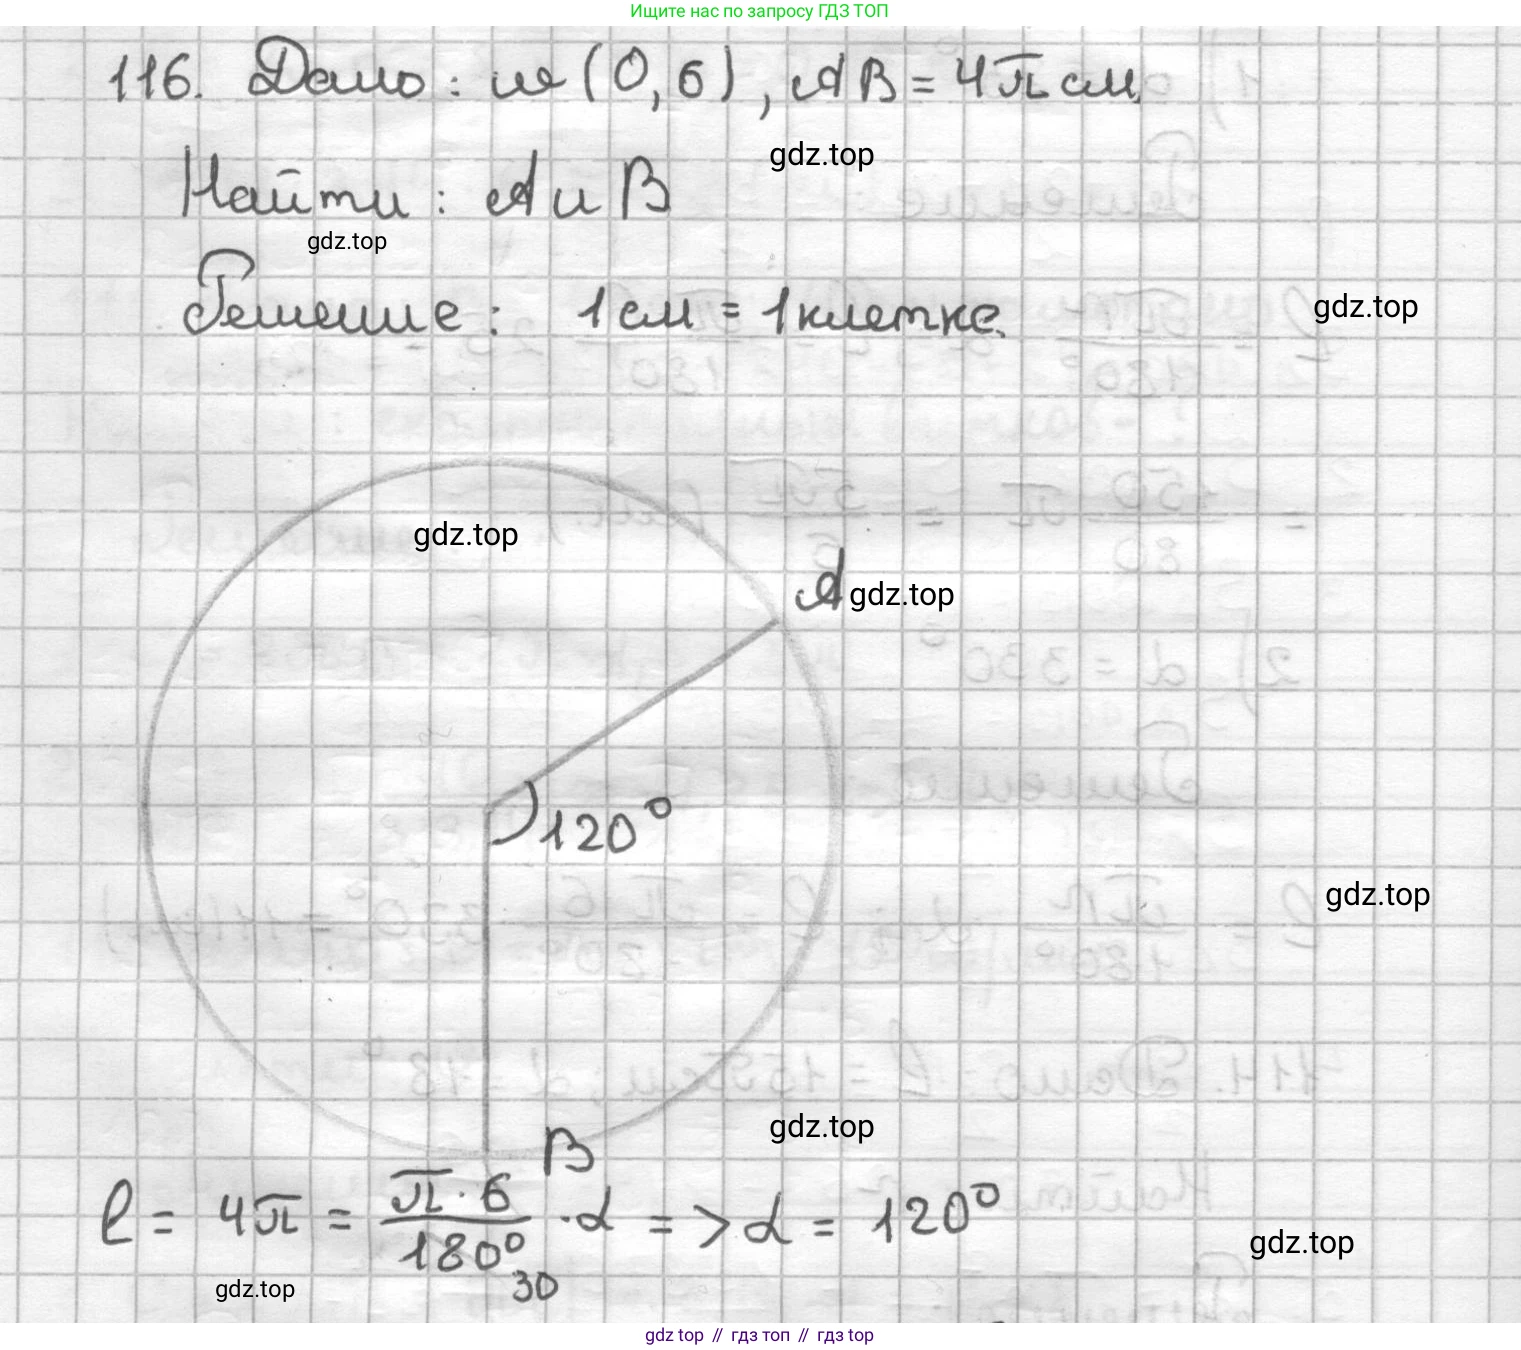 Ищите нас по запросу ГДЗ ТОП
116. Дано: ω(0,6), AB = 4π см.
gdz.top
Найти: A и B
gdz.top
Решение: 1 см = 1 клетке.
gdz.top
gdz.top
A
gdz.top
120°
gdz.top
gdz.top
B
l = 4π = π·6/180° · α => α = 120°
30
gdz.top
gdz.top
gdz top // гдз топ // гдз top